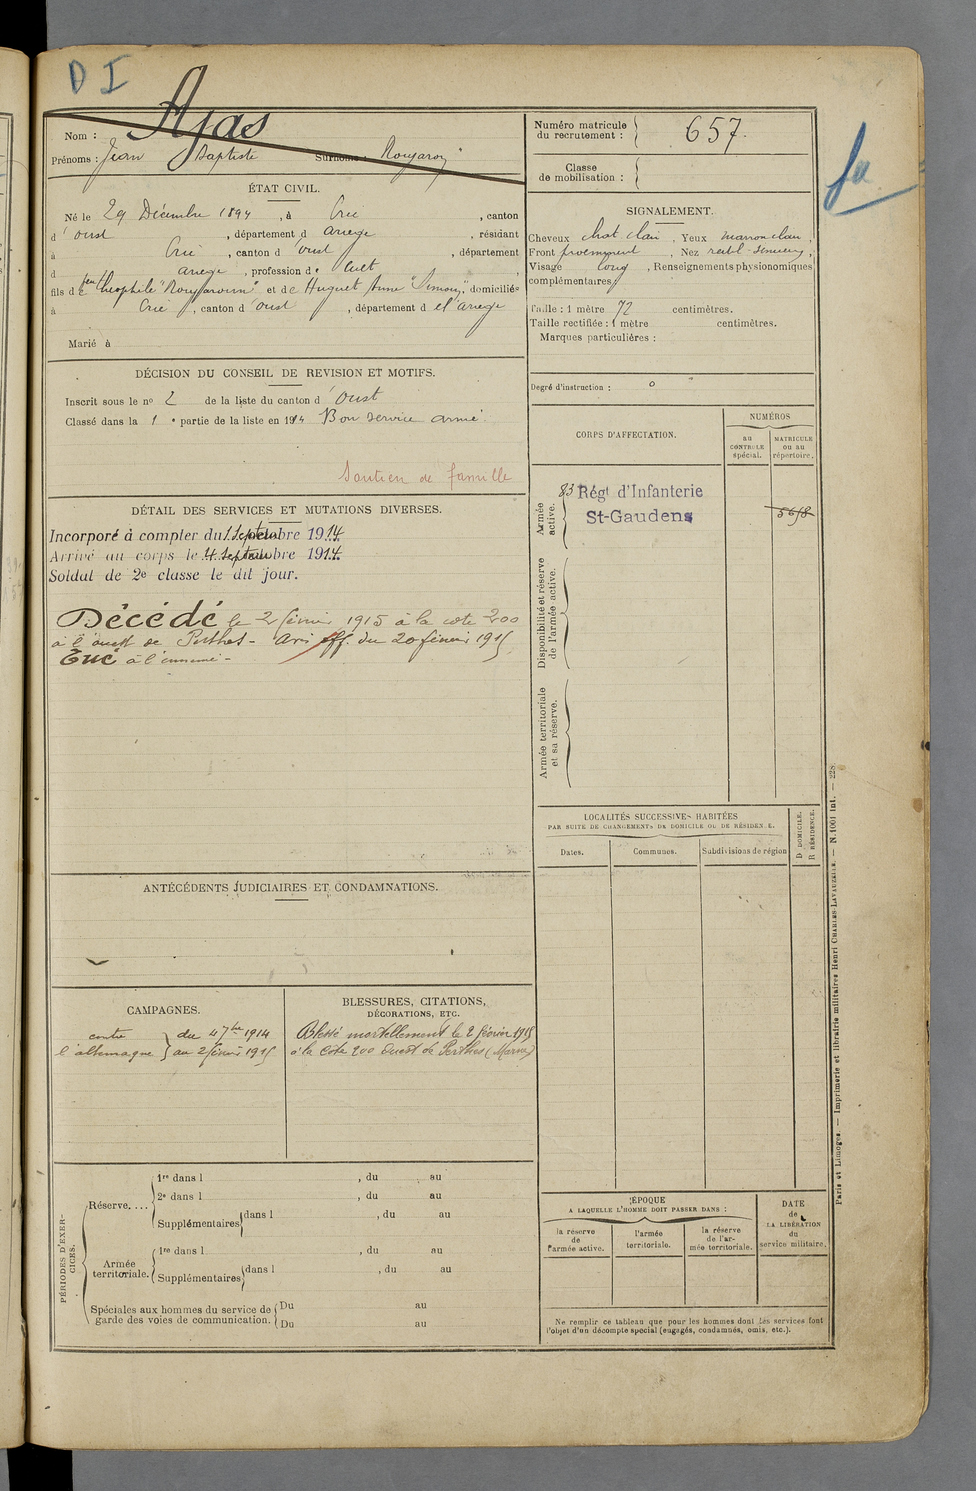 D I
Nom : Ajas
Prénoms : Jean Baptiste Surnoms :
ÉTAT CIVIL.
Né le 29 Décembre 1894, à , canton
d'oust, département d ariege, résidant
à , canton d oust, département
d ariege, profession d
fils d et de Huguet Anne "Simon", domiciliés
à , canton d oust, département d el'ariege
Marié à
DÉCISION DU CONSEIL DE REVISION ET MOTIFS.
Inscrit sous le nº 2 de la liste du canton d'oust
Classé dans la 1e partie de la liste en 1914 Bon service armé.
Soutien de famille
DÉTAIL DES SERVICES ET MUTATIONS DIVERSES.
Incorporé à compter du 1 Septembre 1914.
Arrivé au corps le 4 Septembre 1914.
Soldat de 2e classe le dit jour.
Décédé le 2 février 1915 à la cote 200
à l'ouest de Perthes - Avis off. du 20 février 1915
Tué à l'ennemi -
ANTÉCÉDENTS JUDICIAIRES ET CONDAMNATIONS.
CAMPAGNES.
contre du 4 7bre 1914
l'allemagne au 2 février 1915
BLESSURES, CITATIONS,
DÉCORATIONS, ETC.
Blessé mortellement le 2 février 1915
à la Côte 200 Ouest de Perthes (Marne)
PÉRIODES D'EXERCICES.
Réserve....
1re dans l , du au
2e dans l , du au
Supplémentaires dans l , du au
Armée territoriale.
1re dans l , du au
Supplémentaires dans l , du au
Spéciales aux hommes du service de garde des voies de communication.
Du au
Du au
Numéro matricule du recrutement : 657.
Classe de mobilisation :
SIGNALEMENT.
Cheveux chat clair, Yeux marron clair,
Front proéminent, Nez
Visage long, Renseignements physionomiques
complémentaires
Taille : 1 mètre 72 centimètres.
Taille rectifiée : 1 mètre centimètres.
Marques particulières :
Degré d'instruction : 0
CORPS D'AFFECTATION.
NUMÉROS
au CONTROLE spécial.
MATRICULE ou au répertoire.
Armée active.
83 Régt d'Infanterie
St-Gaudens
5658
Disponibilité et réserve de l'armée active.
Armée territoriale et sa réserve.
LOCALITÉS SUCCESSIVES HABITÉES
PAR SUITE DE CHANGEMENTS DE DOMICILE OU DE RÉSIDENCE.
Dates.
Communes.
Subdivisions de région
D DOMICILE.
R RÉSIDENCE.
ÉPOQUE
A LAQUELLE L'HOMME DOIT PASSER DANS :
la réserve de l'armée active.
l'armée territoriale.
la réserve de l'armée territoriale.
DATE de LA LIBÉRATION du service militaire.
Ne remplir ce tableau que pour les hommes dont les services font
l'objet d'un décompte spécial (engagés, condamnés, omis, etc.).
Paris et Limoges. — Imprimerie et librairie militaires Henri CHARLES-LAVAUZELLE. — N. 1001 int. — 228